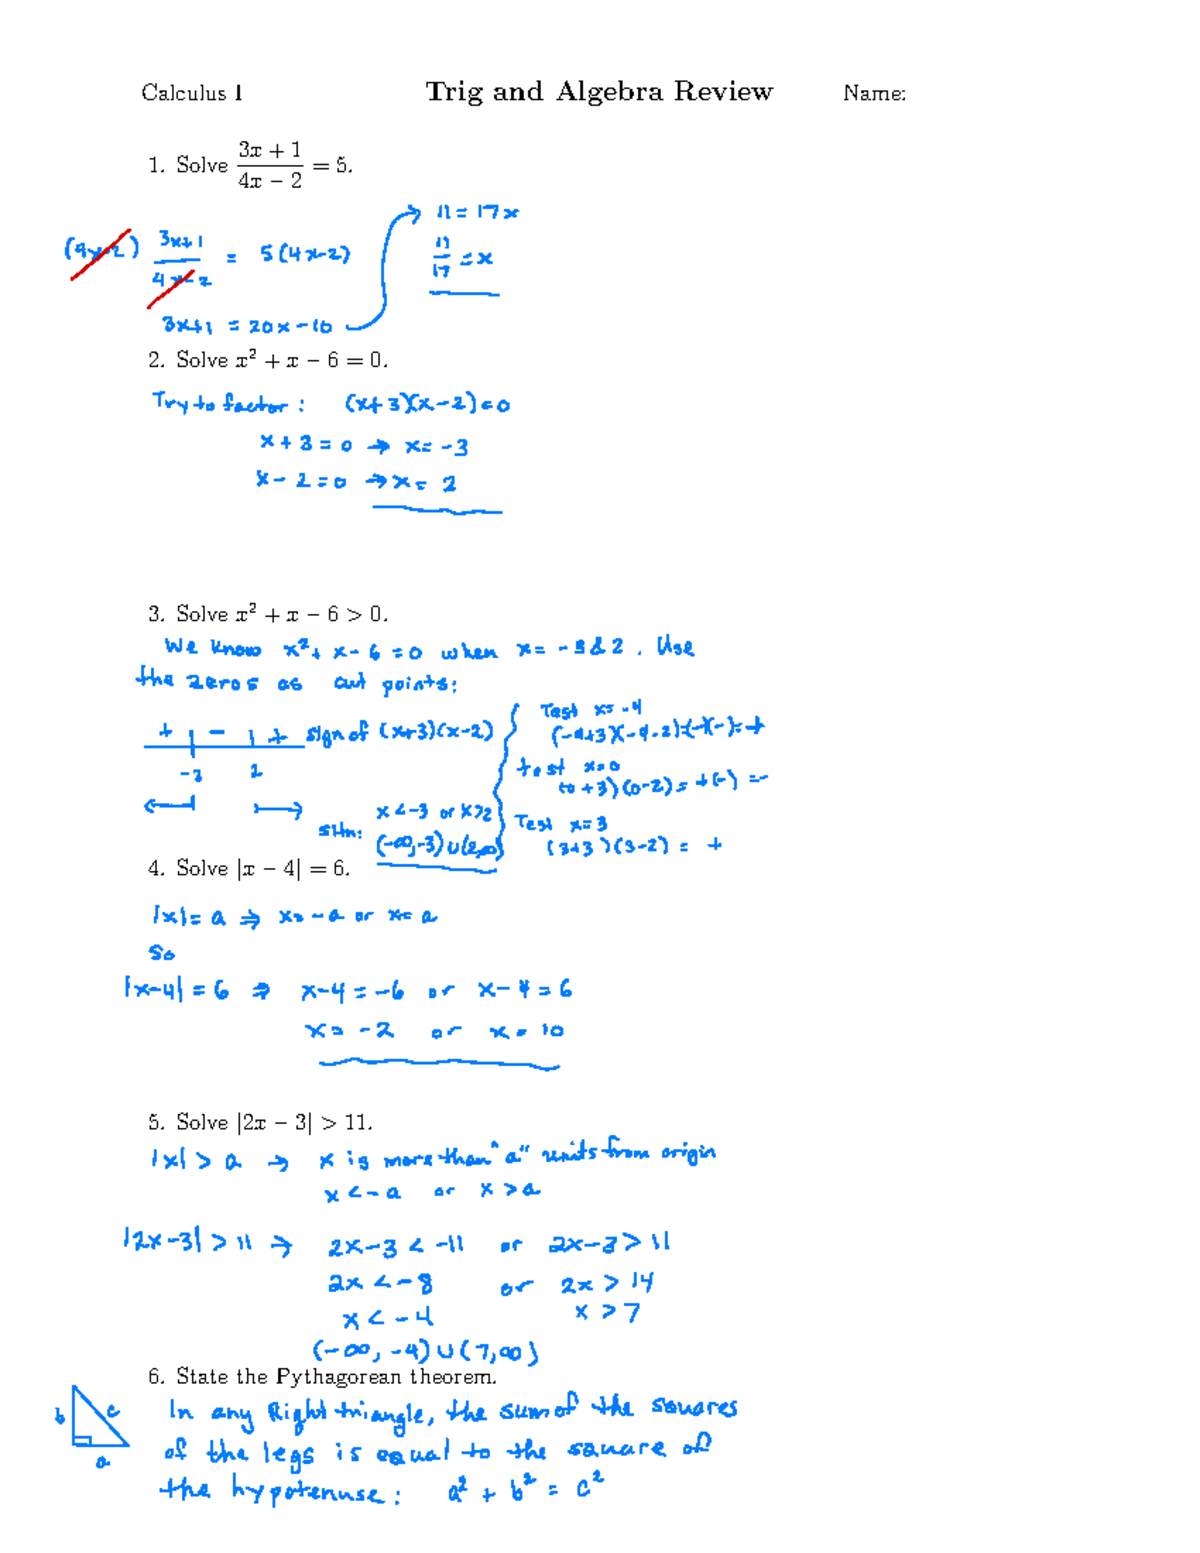 Calculus I Trig and Algebra Review Name:
1. Solve (3x + 1)/(4x − 2) = 5.
(4x-2) (3x+1)/(4x-2) = 5(4x-2)
3x+1 = 20x-10
11 = 17x
11/17 = x
2. Solve x² + x − 6 = 0.
Try to factor: (x+3)(x-2)=0
x+3=0 → x=-3
x-2=0 → x=2
3. Solve x² + x − 6 > 0.
We know x²+x-6=0 when x=-3&2. Use
the zeros as cut points:
+ - + sign of (x+3)(x-2)
-3 2
Soltn: x<-3 or x>2
(-∞,-3)∪(2,∞)
Test x=-4
(-4+3)(-4-2)=(-)(-)=+
test x=0
(0+3)(0-2)=+(-)=-
Test x=3
(3+3)(3-2)=+
4. Solve |x − 4| = 6.
|x|=a ⇒ x=-a or x=a
So
|x-4|=6 ⇒ x-4=-6 or x-4=6
x=-2 or x=10
5. Solve |2x − 3| > 11.
|x|>a → x is more than "a" units from origin
x<-a or x>a
|2x-3|>11 → 2x-3<-11 or 2x-3>11
2x<-8 or 2x>14
x<-4 x>7
(-∞,-4)∪(7,∞)
6. State the Pythagorean theorem.
b c a
In any Right triangle, the sum of the squares
of the legs is equal to the square of
the hypotenuse: a²+b²=c²